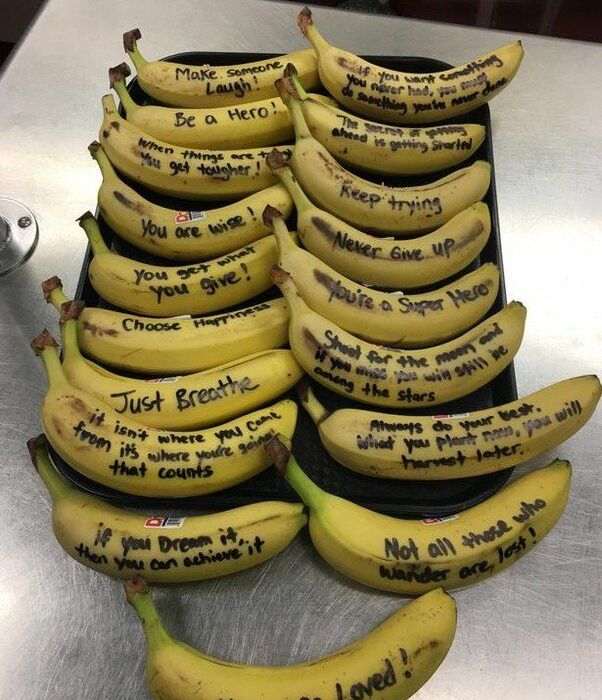 Make someone
Laugh!
Be a Hero!
When things are
You get tougher!
You are wise!
You get what
you give!
Choose Happiness
Just Breathe
it isn't where you Come
from it's where you're going
that counts
if you Dream it..
then you can achieve it
If you want something
you never had, you must
do something you've never done
The secret of getting
ahead is getting started
Keep trying
Never Give up
You're a Super Hero
Shoot for the moon and
if you miss you will still be
among the stars
Always do your best.
What you plant now, you will
harvest later.
Not all those who
wander are, lost!
Loved!